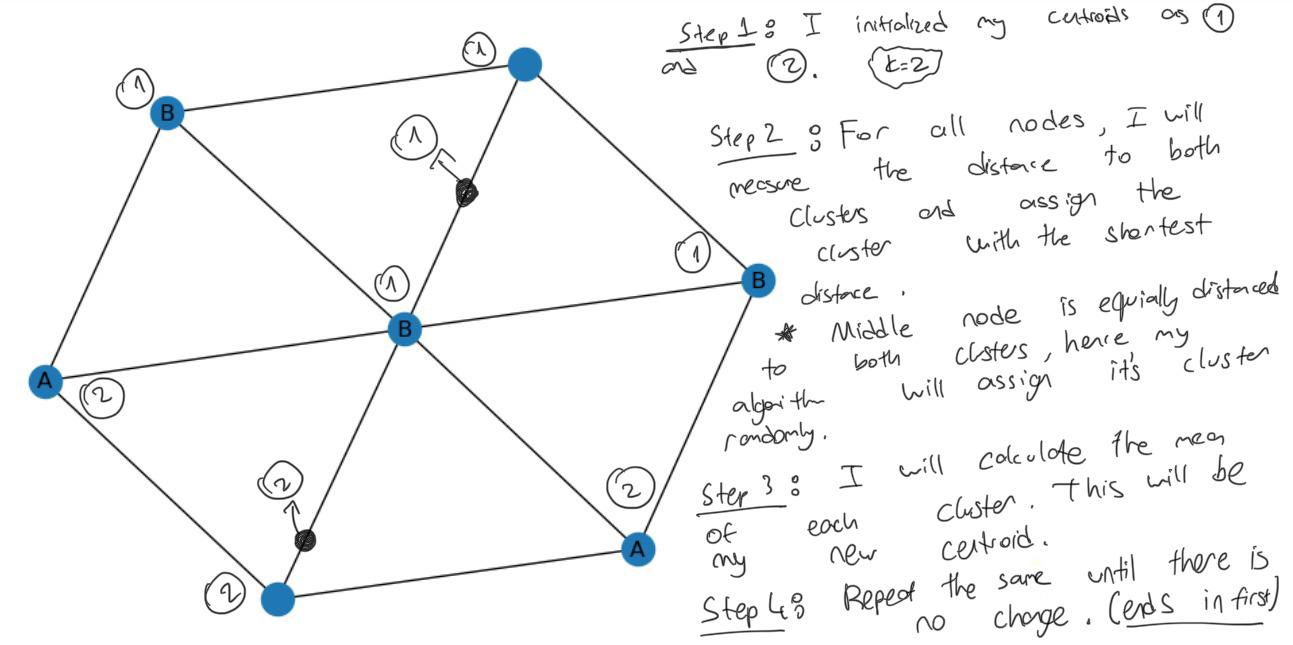 Step 1: I initialized my centroids as ①
and ②. k=2
Step 2: For all nodes, I will
measure the distance to both
clusters and assign the
cluster with the shortest
distance.
* Middle node is equially distanced
to both clsters, hence my
algorithm will assign it's cluster
randomly.
Step 3: I will calculate the mean
of each cluster. This will be
my new centroid.
Step 4: Repeat the same until there is
no change. (ends in first)
①
① B
①
①
① B
B
A ②
②
②
A
②